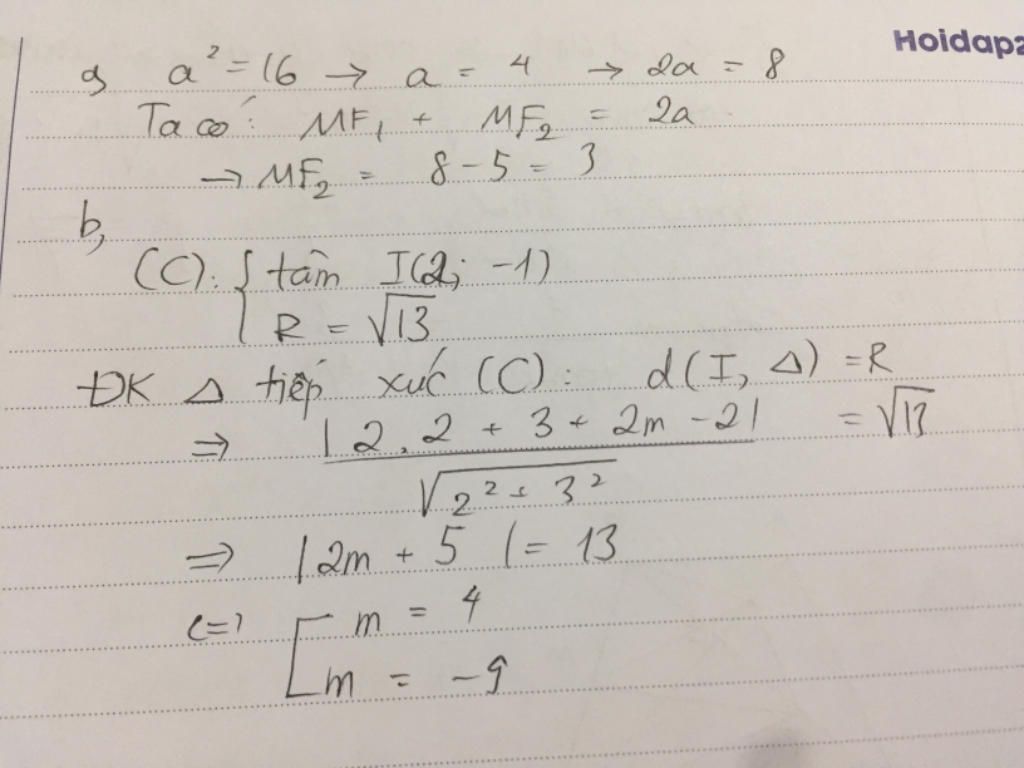 Hoidap2
a, a² = 16 → a = 4 → 2a = 8
Ta có: MF₁ + MF₂ = 2a
→ MF₂ = 8 - 5 = 3
b,
(C): { tâm I(2; -1)
R = √13
ĐK Δ tiếp xúc (C): d(I, Δ) = R
⇒ |2.2 + 3 + 2m - 2| / √(2² + 3²) = √13
⇒ |2m + 5| = 13
<=> [ m = 4
m = -9